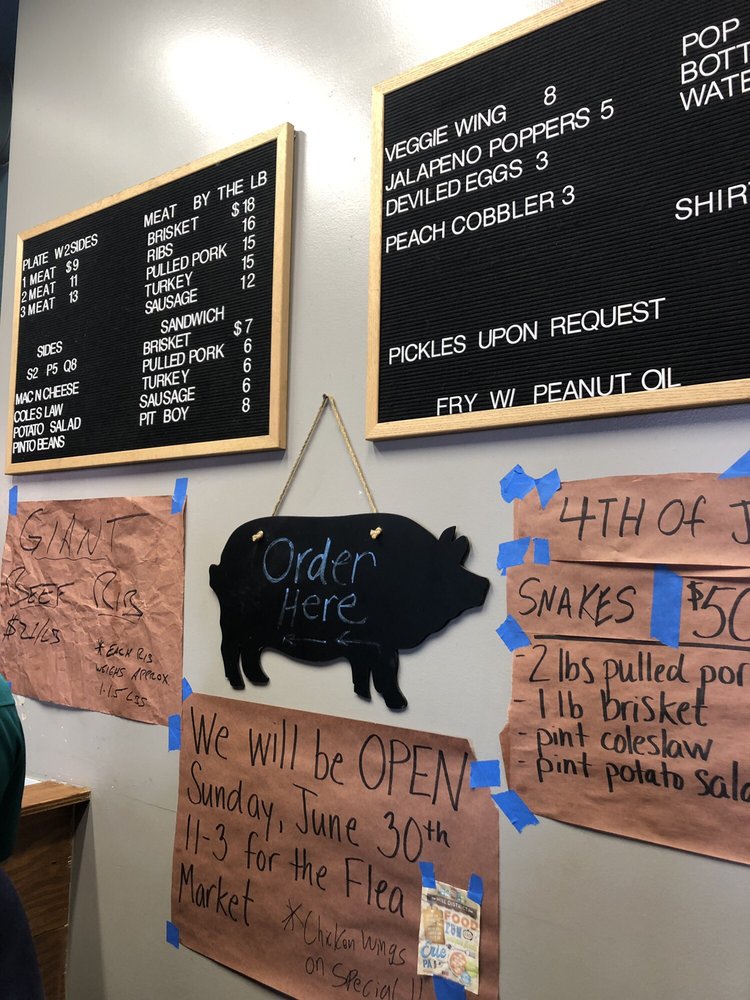 PLATE W 2 SIDES
1 MEAT $9
2 MEAT 11
3 MEAT 13
SIDES
S2 P5 Q8
MAC N CHEESE
COLESLAW
POTATO SALAD
PINTO BEANS
MEAT BY THE LB
BRISKET $18
RIBS 16
PULLED PORK 15
TURKEY 15
SAUSAGE 12
SANDWICH
BRISKET $7
PULLED PORK 6
TURKEY 6
SAUSAGE 6
PIT BOY 8
VEGGIE WING 8
JALAPENO POPPERS 5
DEVILED EGGS 3
PEACH COBBLER 3
PICKLES UPON REQUEST
FRY W/ PEANUT OIL
POP
BOTT
WATE
SHIR
GIANT
BEEF RIB
$21/LB
*EACH RIB
WEIGHS APPROX
1-1.5 LBS
Order
Here
4TH OF J
SNAKES $50
- 2 lbs pulled por
- 1 lb brisket
- pint coleslaw
- pint potato sala
We will be OPEN
Sunday, June 30th
11-3 for the Flea
Market
*Chicken Wings
on Special!!
FOOD
Erie
PA